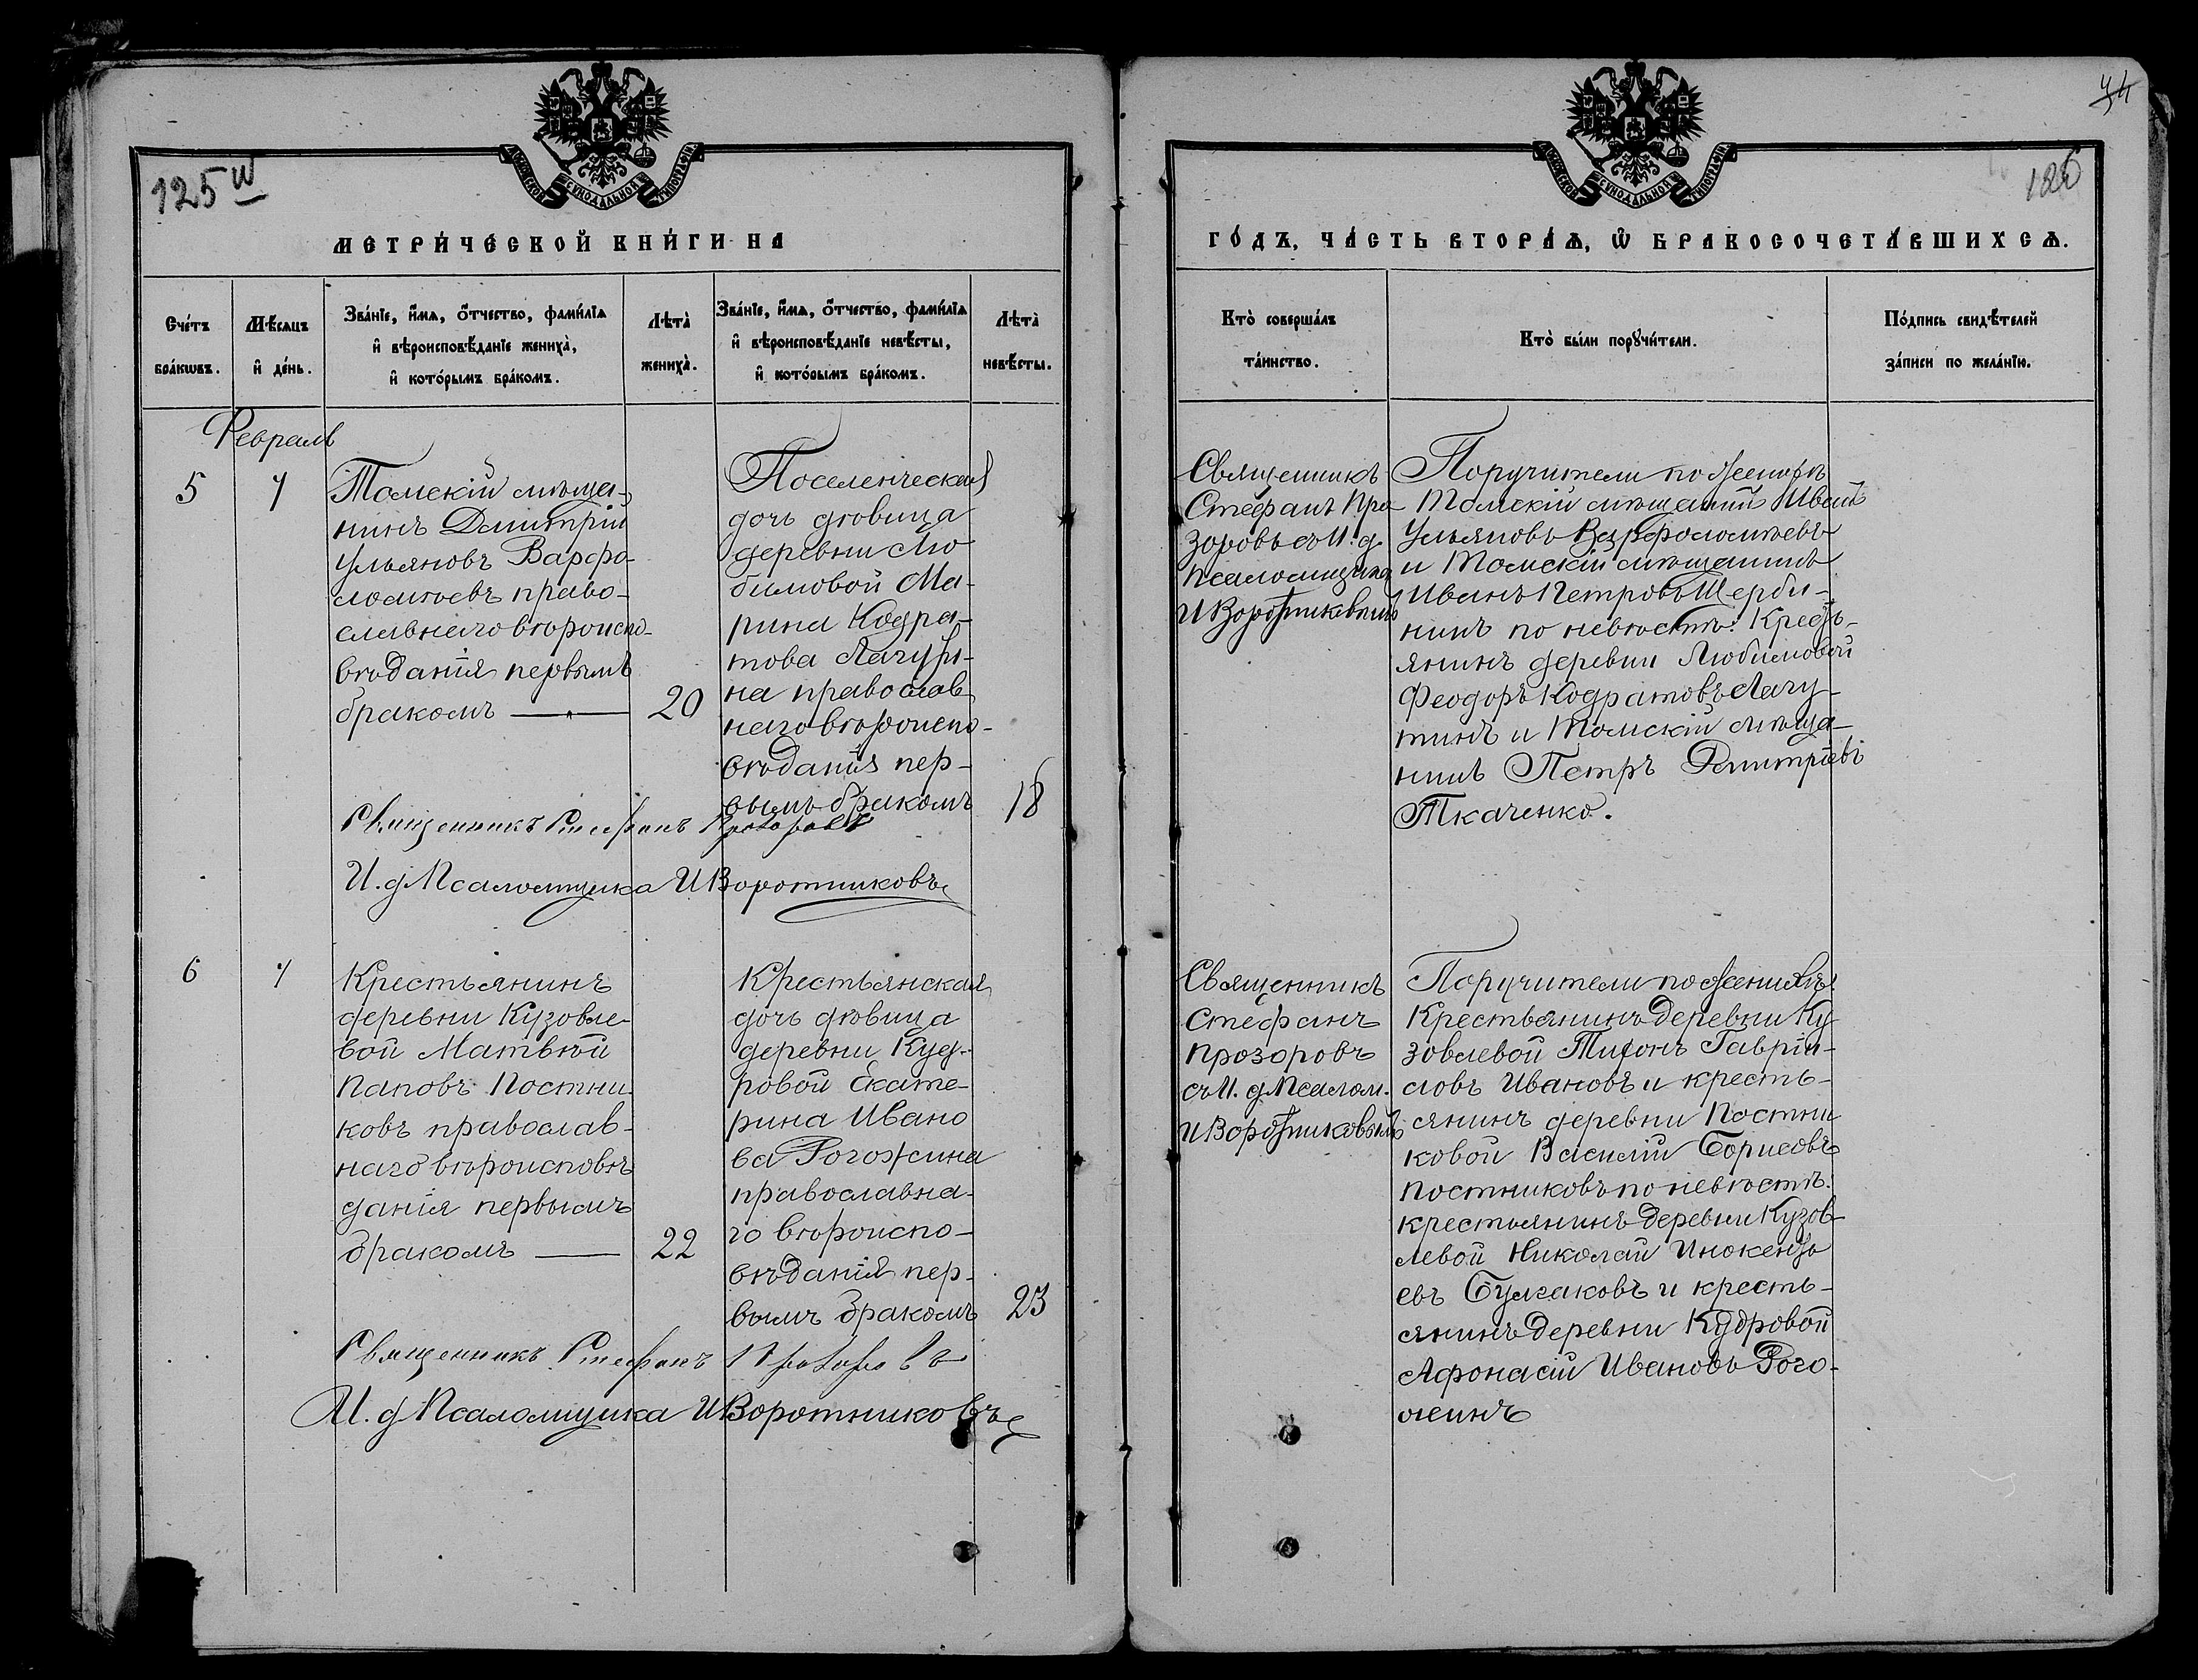 125 и
МОСКОВСКОЙ СѴНОДАЛЬНОЙ ТИПОГРАФІИ
МЕТРИ́ЧЕСКОЙ КНИ́ГИ НА
Сче́тъ бра́кѡвъ.
Мѣ́сѧцъ и҆ де́нь.
Зва́нїе, и҆́мѧ, ѻ҆́тчество, фами́лїѧ
и҆ вѣроисповѣ́данїе жениха̀,
и҆ кото́рымъ бра́комъ.
Лѣта̀ жениха̀.
Зва́нїе, и҆́мѧ, ѻ҆́тчество, фами́лїѧ
и҆ вѣроисповѣ́данїе невѣ́сты,
и҆ кото́рымъ бра́комъ.
Лѣта̀ невѣ́сты.
Февраль
5
4
Томскій мѣща-
нинъ Дмитрій
Ульяновъ Варфо-
ломѣевъ право-
славнаго вѣроиспо-
вѣданія первымъ
бракомъ
20
Поселенческая
дочь дѣвица
деревни Лю
бимовой Ма-
рина Кодра-
това Лагути-
на православ
наго вѣроиспо-
вѣданія пер-
вымъ бракомъ
18
Священникъ Стефанъ Прозоровъ
И. д Псаломщика И Воротниковъ
6
4
Крестьянинъ
деревни Кузовле-
вой Матвѣй
Паповъ Постни-
ковъ православ-
наго вѣроисповѣ
данія первымъ
бракомъ
22
Крестьянская
дочь дѣвица
деревни Куд-
ровой Екате-
рина Ивано
ва Рогожина
православна-
го вѣроиспо-
вѣданія пер-
вымъ бракомъ
23
Священникъ Стефанъ Прозоровъ
И. д Псаломщика И Воротниковъ
126
МОСКОВСКОЙ СѴНОДАЛЬНОЙ ТИПОГРАФІИ
ГО́ДЪ, ЧА́СТЬ ВТОРА́Ѧ, Ѡ҆ БРАКОСОЧЕТА́ВШИХСѦ.
Кто̀ соверша́лъ
та́инство.
Кто̀ бы́ли порꙋчи́тели.
По́дпись свидѣ́телей
за́писи по жела́нїю.
Священникъ
Стефанъ Про-
зоровъ съ И. д.
псаломщика
И Воротниковымъ
Поручители по женихѣ
Томскій мѣщанинъ Иванъ
Ульяновъ Варфоломѣевъ
и Томскій мѣщанинъ
Иванъ Петровъ Щерби-
нинъ по невѣстѣ: Кресть-
янинъ деревни Любимовой
Феодоръ Кодратовъ Лагу-
тинъ и Томскій мѣща-
нинъ Петръ Дмитріевъ
Ткаченко.
Священникъ
Стефанъ
Прозоровъ
съ И. д Псалом.
И Воротниковымъ
Поручители по женихѣ
Крестьянинъ деревни Ку
зовлевой Тихонъ Гаврии-
ловъ Ивановъ и кресть-
янинъ деревни Постни
ковой Василій Борисовъ
Постниковъ по невѣстѣ.
крестьянинъ деревни Кузов-
левой Николай Инокентье
евъ Булгаковъ и кресть-
янинъ деревни Кудровой
Афонасій Ивановъ Рого-
жинъ